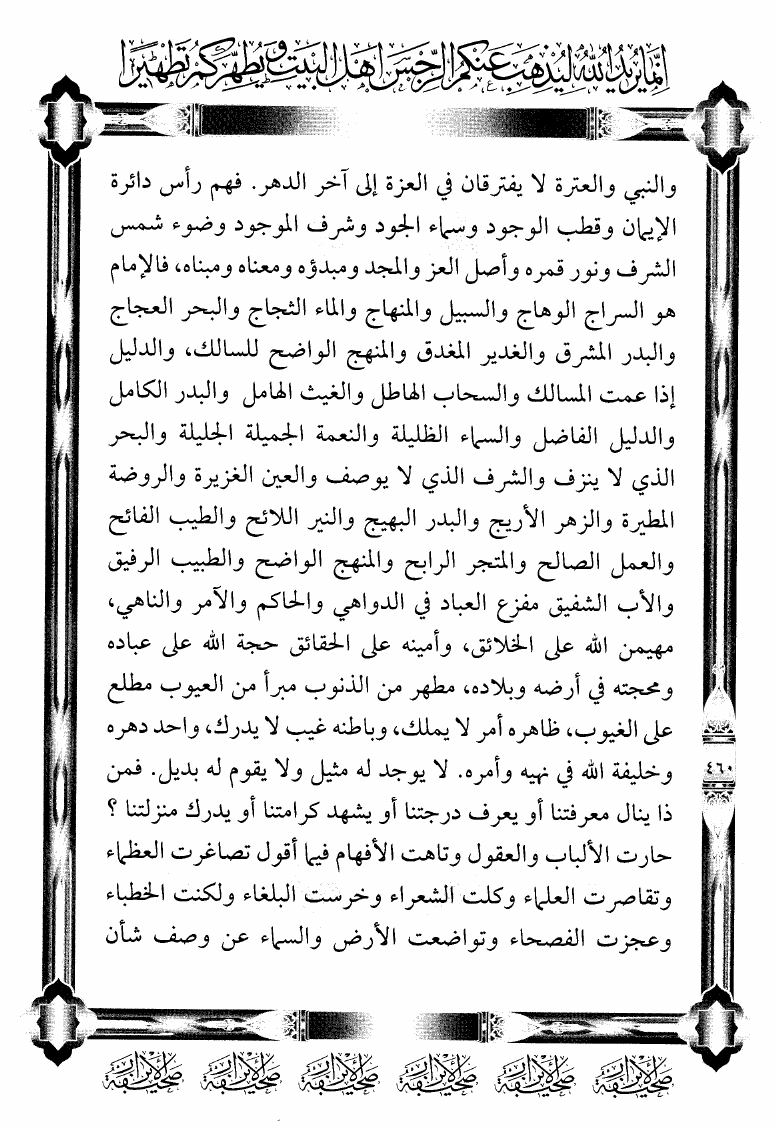 إنما يريد الله ليذهب عنكم الرجس أهل البيت ويطهركم تطهيرا
والنبي والعترة لا يفترقان في العزة إلى آخر الدهر. فهم رأس دائرة
الإيمان وقطب الوجود وسماء الجود وشرف الموجود وضوء شمس
الشرف ونور قمره وأصل العز والمجد ومبدؤه ومعناه ومبناه، فالإمام
هو السراج الوهاج والسبيل والمنهاج والماء الثجاج والبحر العجاج
والبدر المشرق والغدير المغدق والمنهج الواضح للسالك، والدليل
إذا عمت المسالك والسحاب الهاطل والغيث الهامل والبدر الكامل
والدليل الفاضل والسماء الظليلة والنعمة الجميلة الجليلة والبحر
الذي لا ينزف والشرف الذي لا يوصف والعين الغزيرة والروضة
المطيرة والزهر الأريج والبدر البهيج والنير اللائح والطيب الفائح
والعمل الصالح والمتجر الرابح والمنهج الواضح والطبيب الرفيق
والأب الشفيق مفزع العباد في الدواهي والحاكم والآمر والناهي،
مهيمن الله على الخلائق، وأمينه على الحقائق حجة الله على عباده
ومحجته في أرضه وبلاده، مطهر من الذنوب مبرأ من العيوب مطلع
على الغيوب، ظاهره أمر لا يملك، وباطنه غيب لا يدرك، واحد دهره
وخليفة الله في نهيه وأمره. لا يوجد له مثيل ولا يقوم له بديل. فمن
٤٦٠
ذا ينال معرفتنا أو يعرف درجتنا أو يشهد كرامتنا أو يدرك منزلتنا ؟
حارت الألباب والعقول وتاهت الأفهام فيما أقول تصاغرت العظماء
وتقاصرت العلماء وكلت الشعراء وخرست البلغاء ولكنت الخطباء
وعجزت الفصحاء وتواضعت الأرض والسماء عن وصف شأن
صحيفة الأبرار صحيفة الأبرار صحيفة الأبرار صحيفة الأبرار صحيفة الأبرار صحيفة الأبرار